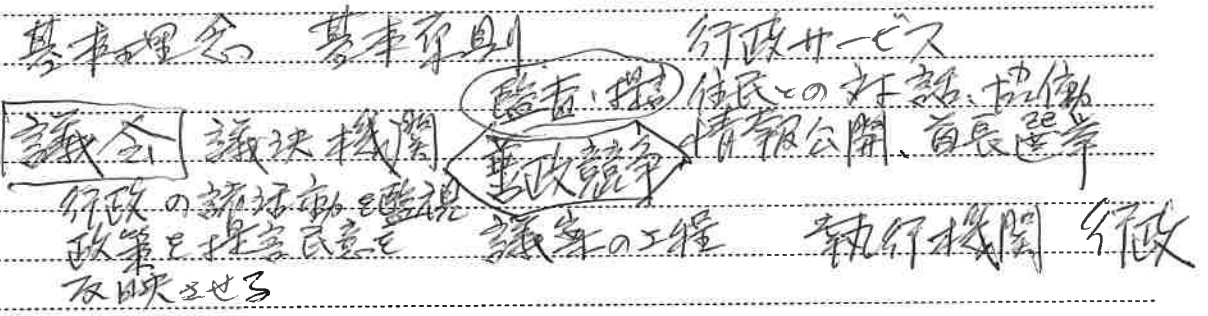 基本理念 基本原則 行政サービス
監査・提言 住民との対話、協働
議会 議決機関 善政競争 情報公開、首長選挙
行政の諸活動を監視
政策を提言民意を 議案の上程 執行機関 行政
反映させる